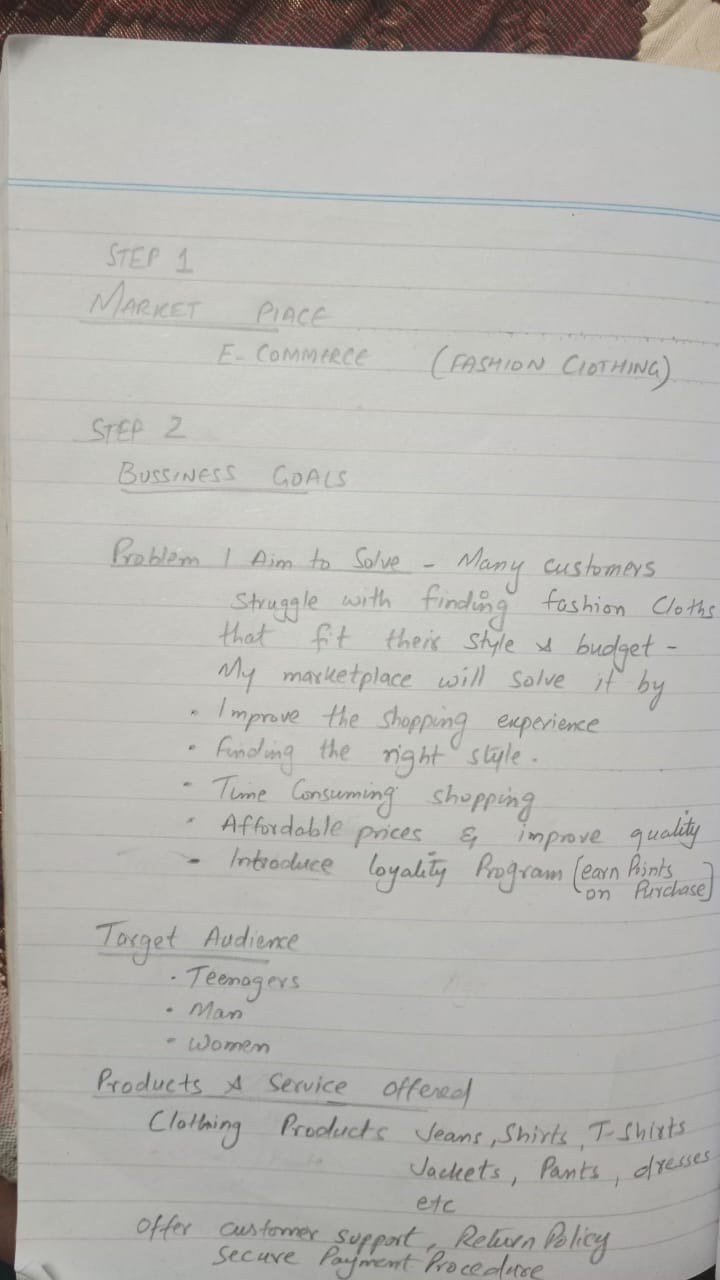 STEP 1
MARKET PlACE
E-COMMERCE (FASHION ClOTHING)
STEP 2
BUSSINESS GOALS
Problem I Aim to Solve - Many customers
Struggle with finding fashion Cloths
that fit their style & budget -
My marketplace will solve it by
• Improve the shopping experience
• Finding the right style.
- Time Consuming shopping
• Affordable prices & improve quality
- Introduce loyality Program [earn Points
on Purchase]
Target Audience
• Teenagers
• Man
- Women
Products & Service offered
Clothing Products Jeans, Shirts, T-Shirts
Jackets, Pants, dresses
etc
Offer customer support, Return Policy
Secure Payment Procedure